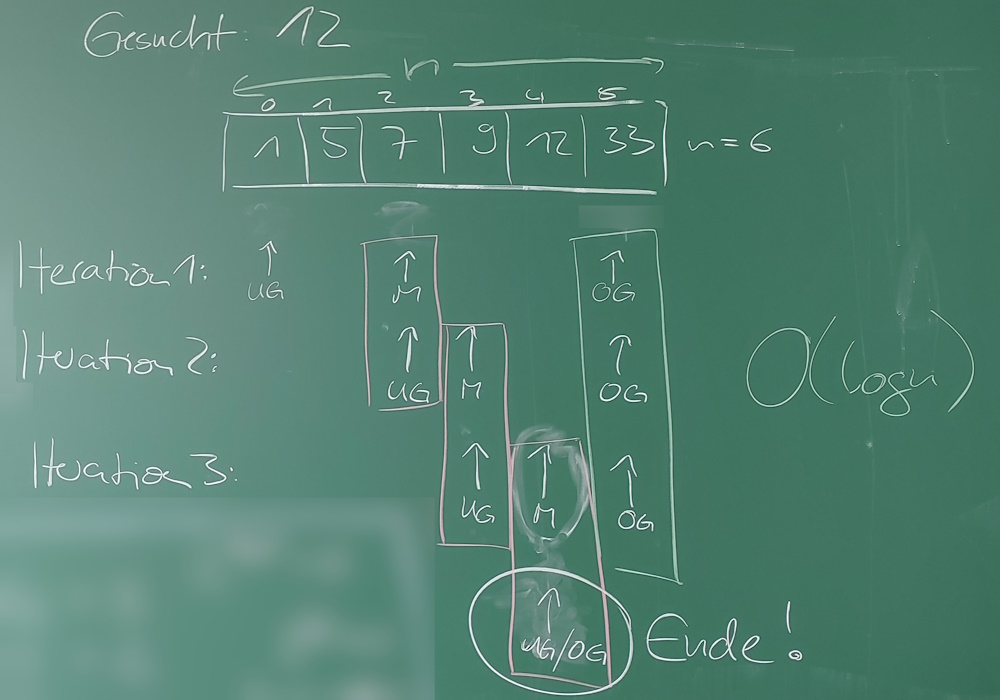 Gesucht: 12
n
0 1 2 3 4 5
1 5 7 9 12 33 n=6
Iteration 1: UG M OG
Iteration 2: UG M OG
O(logn)
Iteration 3: UG M OG
UG/OG Ende!